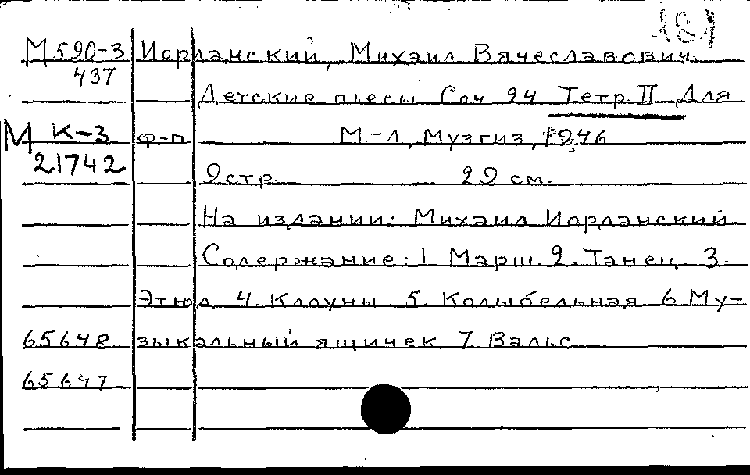 М590-3 Иорданский, Михаил Вячеславович.
437
Детские пьесы Соч 94 Тетр. II Для
М К-3 ф-п М.-Л, Музгиз, 1946
21742
9стр 29 см.
На издании: Михаил Иорданский
Содержание: 1 Марш. 2. Танец. 3.
Этюд 4. Клоуны 5. Колыбельная 6 Му-
65648 зыкальный ящичек 7. Вальс
65647